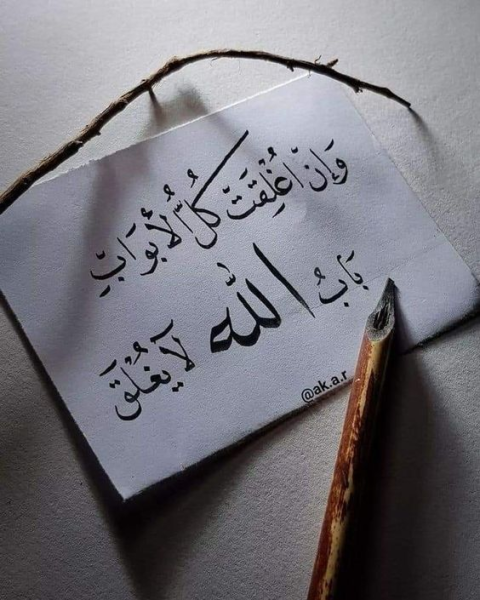 وَإِنْ اُغْلِقَتْ كُلُّ الْأَبْوَابِ
بَابُ اللّٰه لَا يُغْلَقَ
@ak.a.r